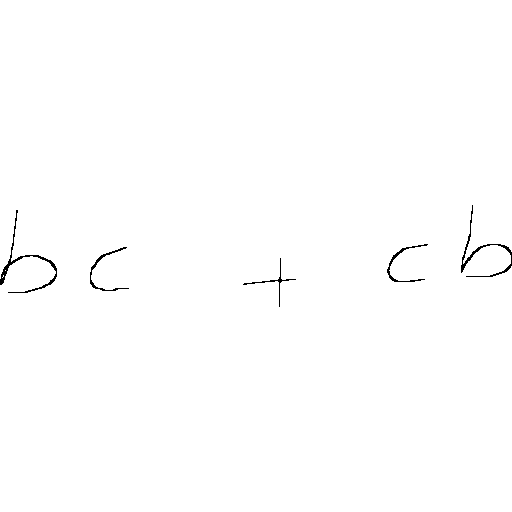 bc + cb